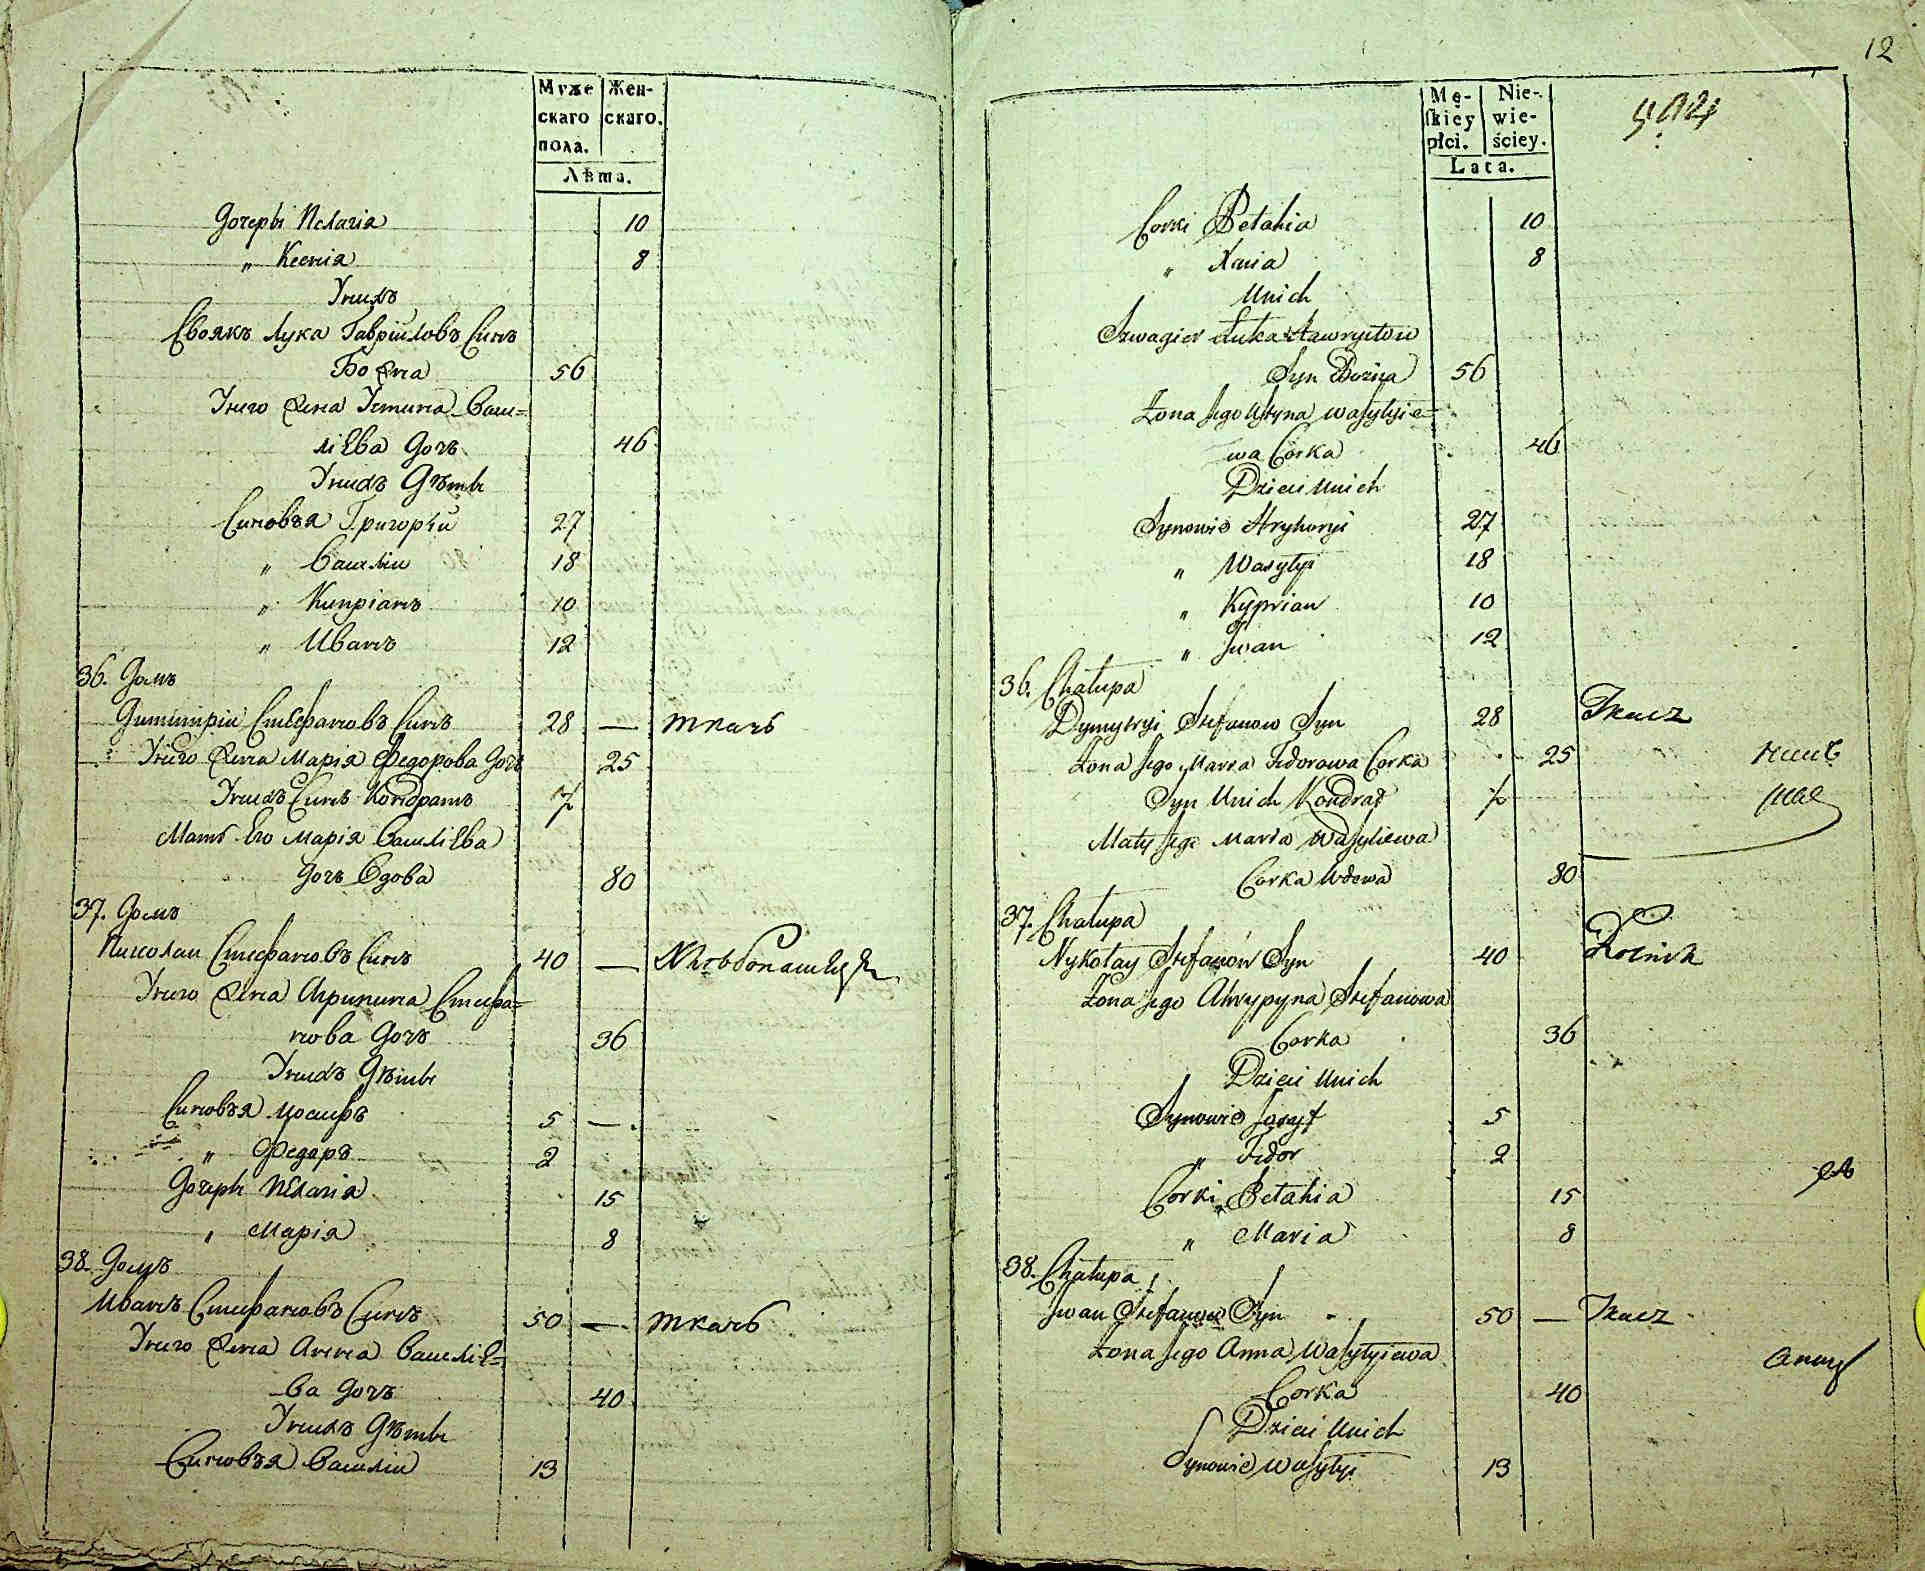 Муже скаго пола. Жен- скаго.
Лѣта.
Дочеры Пелагія 10
„ Ксенія 8
Унихъ
Своякъ Лука Гавріиловъ Синъ
Божна 56
Унего жена Устина Васи=
ліева Дочь 46
Унихъ Дѣти
Синовья Григорій 27
„ Василій 18
„ Кипріанъ 10
„ Иванъ 12
36. Домъ
Димитрій Стефановъ Синъ 28 — ткачъ
Унего жена Марія Федорова Дочь 25
Унихъ Синъ Кондратъ
Мать Его Марія Василіева
Дочь Вдова 80
37. Домъ
Николай Стефановъ Синъ 40 — Хлѣбопашецъ
Унего жена Агрипина Стефа=
нова Дочь 36
Унихъ Дѣти
Синовья Иосифъ 5 —
„ Федоръ 2
Дочеры Пелагія 15
„ Марія 8
38. Домъ
Иванъ Стефановъ Синъ 50 — ткачъ
Унего жена Анна Василіе=
ва Дочь 40
Унихъ Дѣти
Синовья Василій 13
12
Mę- skiey płci. Nie- wie- ściey.
Lata.
Corki Petahia 10
„ Xenia 8
Unich
Szwagier Łuka Hawryiłow
Syn Bożna 56
Żona Jego Ustyna Wasylyie=
wa Corka 46
Dzieci Unich
Synowie Hryhoryi 27
„ Wasylyi 18
„ Kyprian 10
„ Jwan 12
36. Chałupa
Dymytryi Stefanow Syn 28 Tkacz
Żona Jego Maria Fidorowa Corka 25
Syn Unich Kondrat
Maty Jego Maria Wasyliewa
Corka Wdowa 80
37. Chałupa
Nykołay Stefanów Syn 40 Rolnik
Żona Jego Ahrypyna Stefanowa
Corka 36
Dzieci Unich
Synowie Josyf 5
„ Fidor 2
Corki Petahia 15
„ Maria 8
38. Chałupa
Jwan Stefanow Syn 50 — Tkacz
Żona Jego Anna Wasylyiewa
Corka 40
Dzieci Unich
Synowie Wasylyi 13